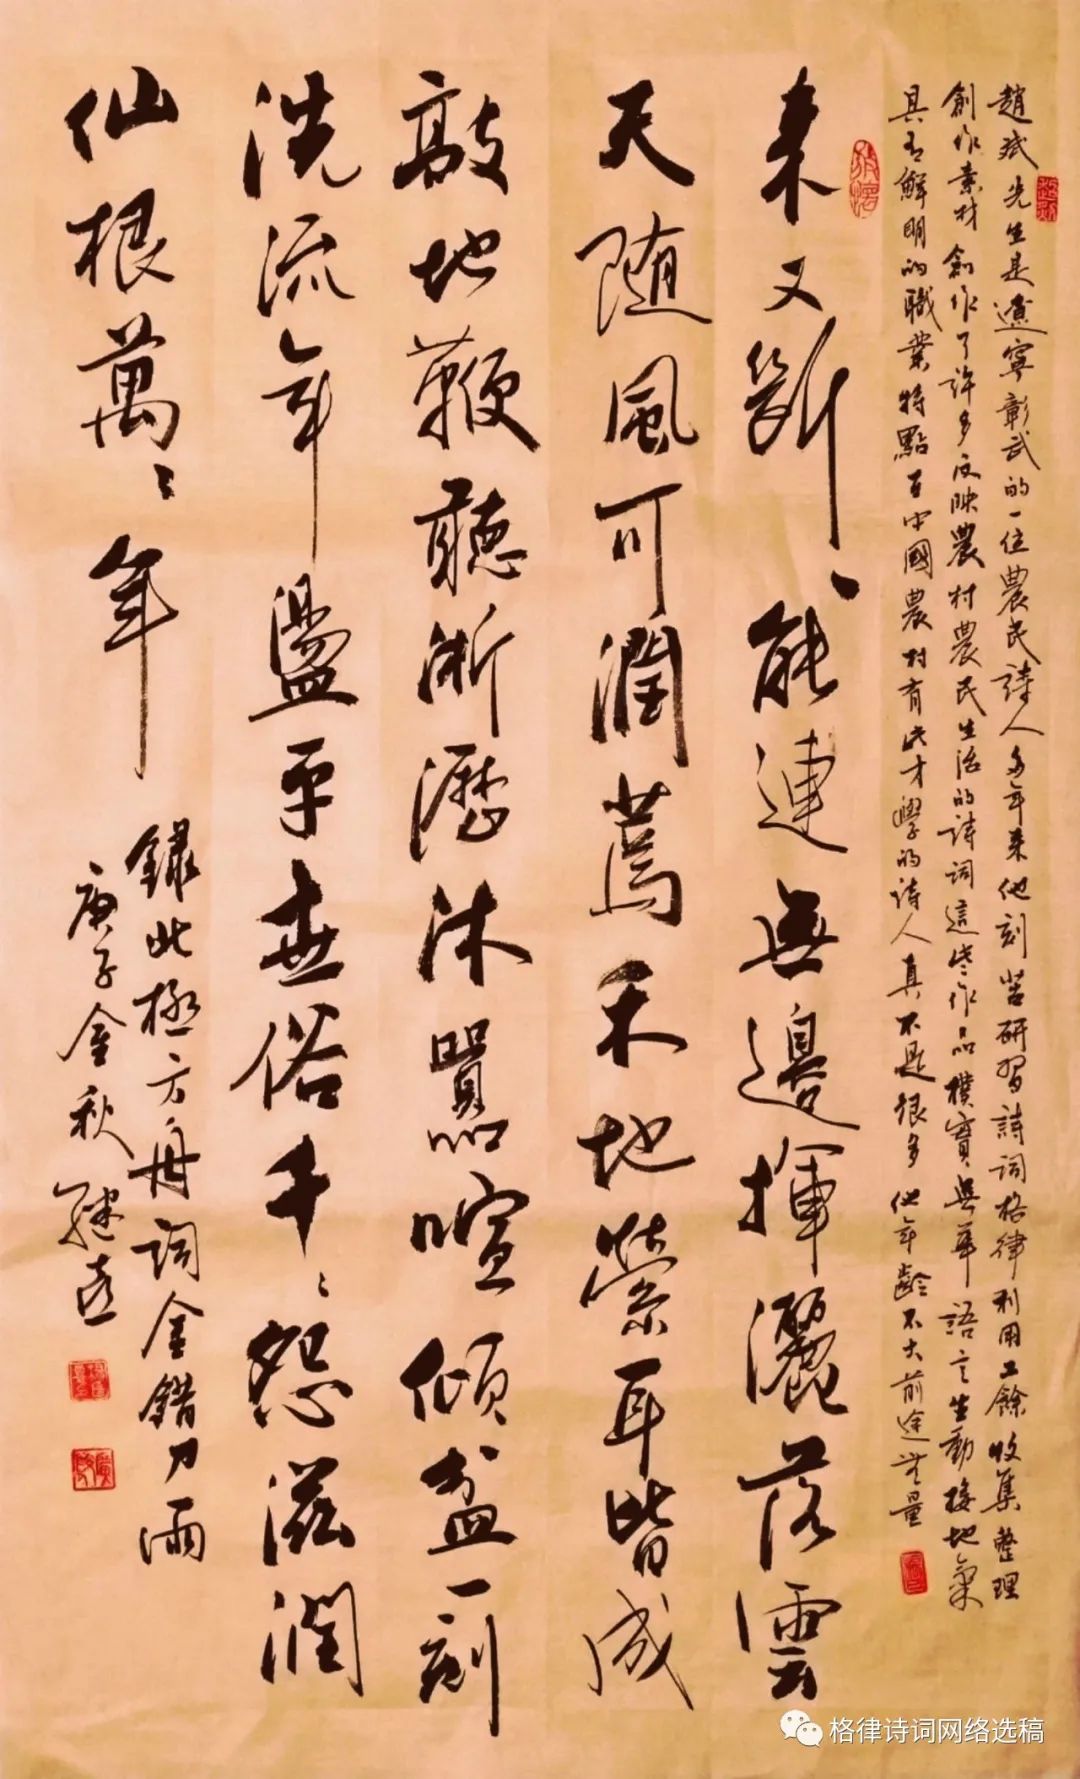 趙斌先生是遼寧彰武的一位農民詩人多年来他刻苦研習詩詞格律利用工餘收集整理
創作素材創作了許多反映農村農民生活的詩詞這些作品樸實無華語言生動接地氣
具有鮮明的職業特點在中國農村有此才學的詩人真不是很多他年齡不大前途无量
来又斷、能連無邊揮灑落雲
天随風可潤蔫禾地縈耳皆成
敲地鞭聽淅瀝沐囂喧傾盆一刻
洗流年盪平世俗千、怨滋潤
仙根萬、年
録此極方舟詞金錯刀雨
庚子金秋
格律诗词网络选稿